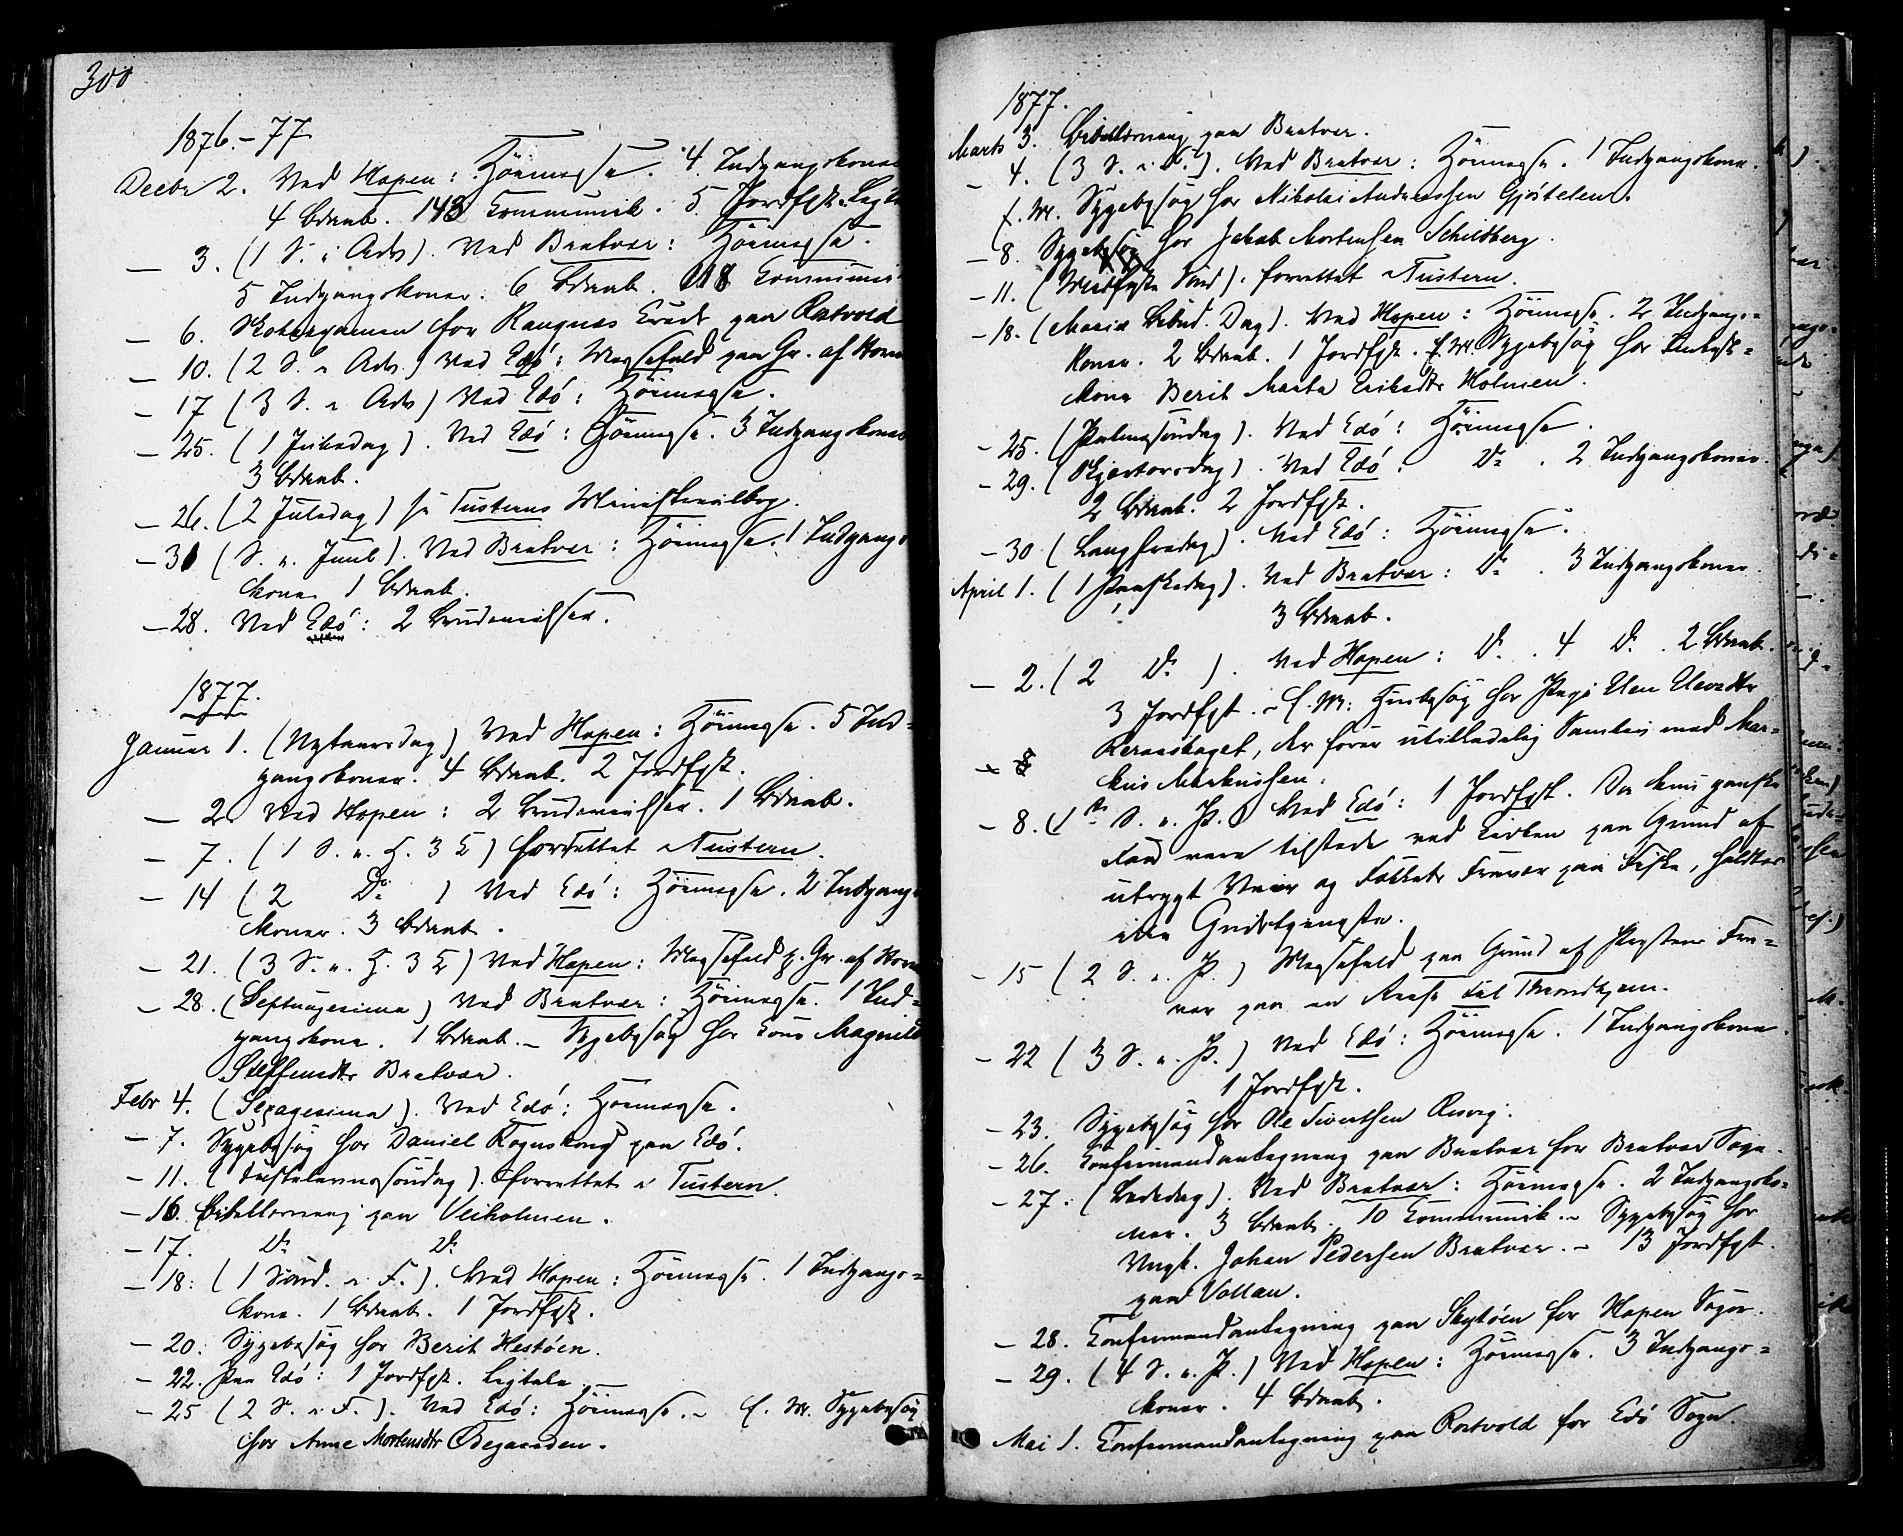 300
1876.-77
Decbr 2. Ved Hopen: Höimesse. 4 Indgangskoner
4 Bdaab. 143 Communik. 5 Jordfst.
— 3. (1 S. i Adv). Ved Bratvær: Höimesse.
5 Indgangskoner. 6 Bdaab. 118 Communik
— 6. Skoleexamen for Kreds paa Rostvold
— 10. (2 S. i Adv.) Ved Edö: Messefald paa Gr. af
— 17 (3 S. i Adv) Ved Edö: Höimesse.
— 25. (1 Juledag). Ved Edö: Höimesse. 3 Indgangskoner
3 Bdaab.
— 26. (2 Juledag) i Tusterns
— 31 (S. e. Juul). Ved Bratvær: Höimesse. 1 Indgangs-
kone 1 Bdaab.
— 28. Ved Edö: 2 Brudevielser.
1877.
Januar 1. (Nytaarsdag) Ved Hopen: Höimesse. 5 Ind-
gangskoner. 4 Bdaab. 2 Jordfst.
— 2. Ved Hopen: 2 Brudevielser. 1 Bdaab.
— 7. (1 S. e. H. 3 K) forrettet i Tustern.
— 14 (2 Do ) Ved Edö: Höimesse. 2 Indgangs-
koner. 3 Bdaab.
— 21. (3 S. e. H. 3 K) Ved Hopen: Messefald p. Gr. af
— 28. (Septuagesima) Ved Bratvær: Höimesse. 1 Ind-
gangskone. 1 Bdaab. – Sygebesög hos Kone Magnild
Steffensdtr Bratvær.
Febr 4. (Sexagesima). Ved Edö: Höimesse.
— 7. Sygebesög hos Daniel paa Edö.
— 11. (Fastelavnssöndag). forrettet i Tustern.
— 16. Bibellæsning paa Veiholmen.
— 17. Do Do
— 18. (1 Sönd. i F.). Ved Hopen: Höimesse. 1 Indgangs-
kone. 1 Bdaab. 1 Jordfst.
— 20. Sygebesög hos Berit Hestöen.
— 22. Paa Edö: 1 Jordfst. Ligtale.
— 25 (2 S. i F.). Ved Edö: Höimesse. – E. M. Sygebesög
hos Anne Mortensdtr Ödegaarden.
1877.
Marts 3. Bibellæsning paa Bratvær.
— 4. (3 S. i F.). Ved Bratvær: Höimesse. 1 Indgangskone.
E. M. Sygebesög hos Nikolai Andreassen Gjöstelen.
— 8. Sygebesög hos Jakob Mortensen Schildberg.
— 11. (Midfaste Sönd). forrettet i Tustern.
— 18. (Mariæ Bebud. Dag). Ved Hopen: Höimesse. 2 Indgangs-
koner. 2 Bdaab. 1 Jordfst. E. M. Sygebesög hos
kone Berit Marta Eriksdtr Holmen.
— 25. (Palmesöndag). Ved Edö: Höimesse.
— 29. (Skjærtorsdag). Ved Edö: Do. 2 Indgangskoner.
2 Bdaab. 2 Jordfst.
— 30 (Langfredag). Ved Edö: Höimesse.
April 1. (1 Paaskedag). Ved Bratvær: Do. 3 Indgangskoner.
3 Bdaab.
— 2. (2 Do ). Ved Hopen: Do. 4 Do. 2 Bdaab.
3 Jordfst. – E. M. Husbesög hos Pige
der förer utilladelig Samliv med Mar-
kus Markussen.
— 8. (1ste S. e. P.) Ved Edö: 1 Jordfst. Da kun ganske
Faa vare tilstede ved Kirken paa Grund af
utrygt Veir og Folkets Fravær paa Fiske, holdtes
ikke Gudstjeneste.
— 15 (2 S. e. P.) Messefald paa Grund af Prestens Fra-
vær paa en Reise til Throndhjem.
— 22 (3 S. e. P.) Ved Edö: Höimesse. 1 Indgangskone.
1 Jordfst.
— 23. Sygebesög hos Ole Sivertsen
— 26. Konfirmandantegning paa Bratvær for Bratvær Sogn.
— 27. (Bededag). Ved Bratvær: Höimesse. 2 Indgangsko-
ner. 3 Bdaab. 10 Communik. – Sygebesög hos
Ungk. Johan Pedersen Bratvær. – 13 Jordfst.
paa Vollan.
— 28. Konfirmandantegning paa for Hopen Sogn.
— 29. (4 S. e. P.) Ved Hopen: Höimesse. 3 Indgangs-
koner. 4 Bdaab.
Mai 1. Konfirmandantegning paa Rostvold for Edö Sogn.